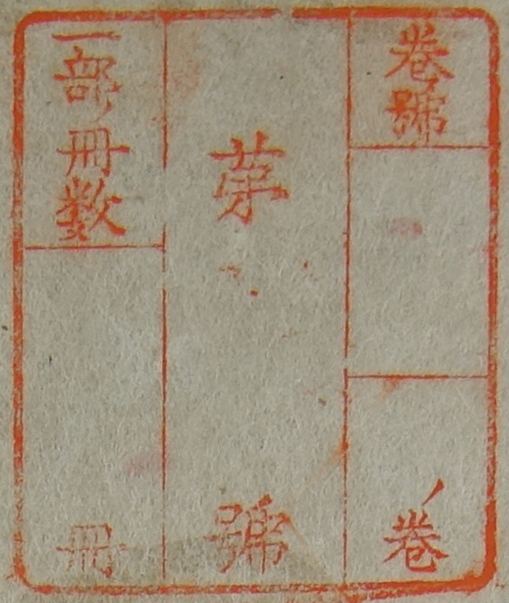 卷ノ號
ノ卷
第
號
一部ノ冊数
冊